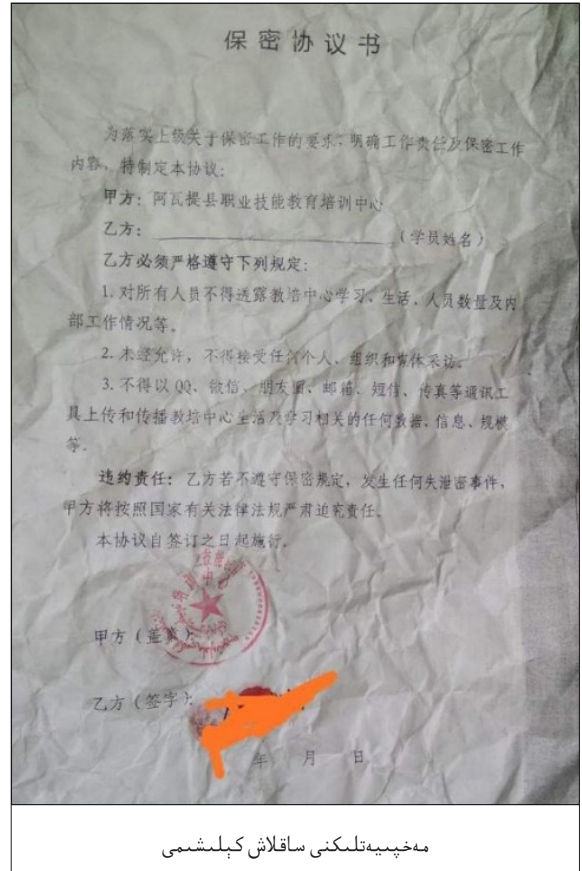 保密协议书
为落实上级关于保密工作的要求，明确工作责任及保密工作
内容，特制定本协议：
甲方：阿瓦提县职业技能教育培训中心
乙方：（学员姓名）
乙方必须严格遵守下列规定：
1. 对所有人员不得透露教培中心学习、生活、人员数量及内
部工作情况等。
2. 未经允许，不得接受任何个人、组织和媒体采访。
3. 不得以QQ、微信、朋友圈、邮箱、短信、传真等通讯工
具上传和传播教培中心生活及学习相关的任何数据、信息、规模
等。
违约责任：乙方若不遵守保密规定，发生任何失泄密事件，
甲方将按照国家有关法律法规严肃追究责任。
本协议自签订之日起施行。
甲方（盖章）：
乙方（签字）：
年 月 日
مەخپىيەتلىكنى ساقلاش كېلىشىمى